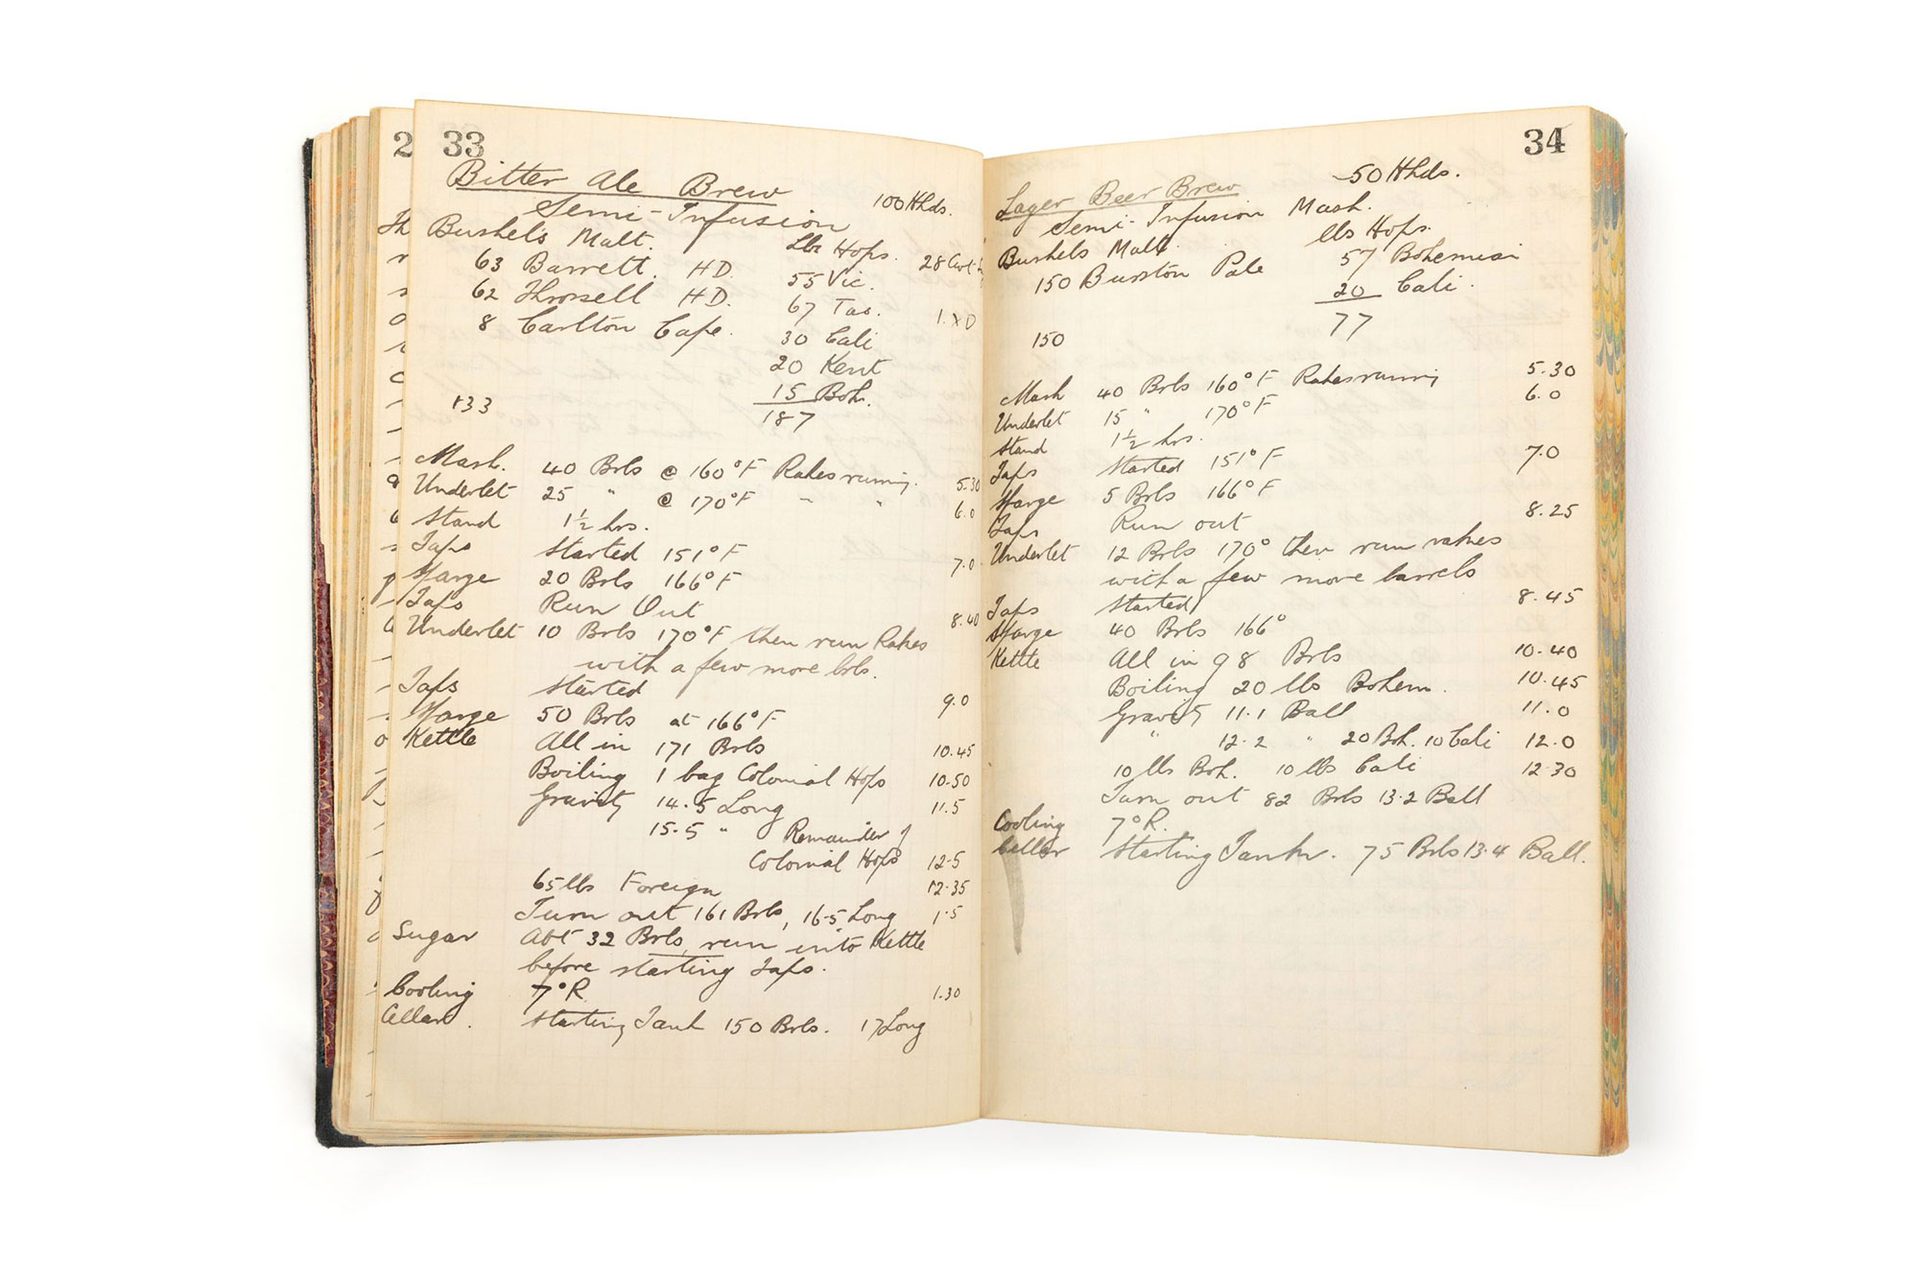 33
Bitter Ale Brew 100 Hhds.
Semi-Infusion
Bushels Malt. Lbs Hops. 28 Cwt
63 Barrett. HD. 55 Vic.
62 Thrssell HD. 67 Tas. 1.XD
8 Carlton Cape. 30 Cali
20 Kent
15 Boh.
133 187
Mash. 40 Brls @ 160°F Rakes running. 5.30
Underlet 25 " @ 170°F " " 6.0
Stand 1½ hrs.
Taps Started 151°F 7.0
Sparge 20 Brls 166°F
Taps Run Out 8.40
Underlet 10 Brls 170°F then run Rakes
with a few more brls.
Taps Started 9.0
Sparge 50 Brls at 166°F
Kettle All in 171 Brls 10.45
Boiling 1 bag Colonial Hops 10.50
Gravity 14.5 Long 11.5
15.5 " Remainder of
Colonial Hops 12.5
65 lbs Foreign 12.35
Turn out 161 Brls, 16.5 Long 1.5
Sugar Abt 32 Brls run into Kettle
before starting Taps.
Cooling 7°R 1.30
Cellar. Starting Tank 150 Brls. 17 Long
34
Lager Beer Brew 50 Hhds.
Semi-Infusion Mash.
Bushels Malt. lbs Hops.
150 Burston Pale 57 Bohemian
20 Cali.
150 77
Mash 40 Brls 160°F Rakes running 5.30
Underlet 15 " 170°F 6.0
Stand 1½ hrs.
Taps Started 151°F 7.0
Sparge 5 Brls 166°F
Taps Run out 8.25
Underlet 12 Brls 170° then run rakes
with a few more barrels
Taps Started 8.45
Sparge 40 Brls 166°
Kettle All in 98 Brls 10.40
Boiling 20 lbs Bohem. 10.45
Gravity 11.1 Ball 11.0
" 12.2 " 20 Boh. 10 Cali 12.0
10 lbs Boh. 10 lbs Cali 12.30
Turn out 82 Brls 13.2 Ball
Cooling 7°R.
Cellar Starting Tank. 75 Brls 13.4 Ball.